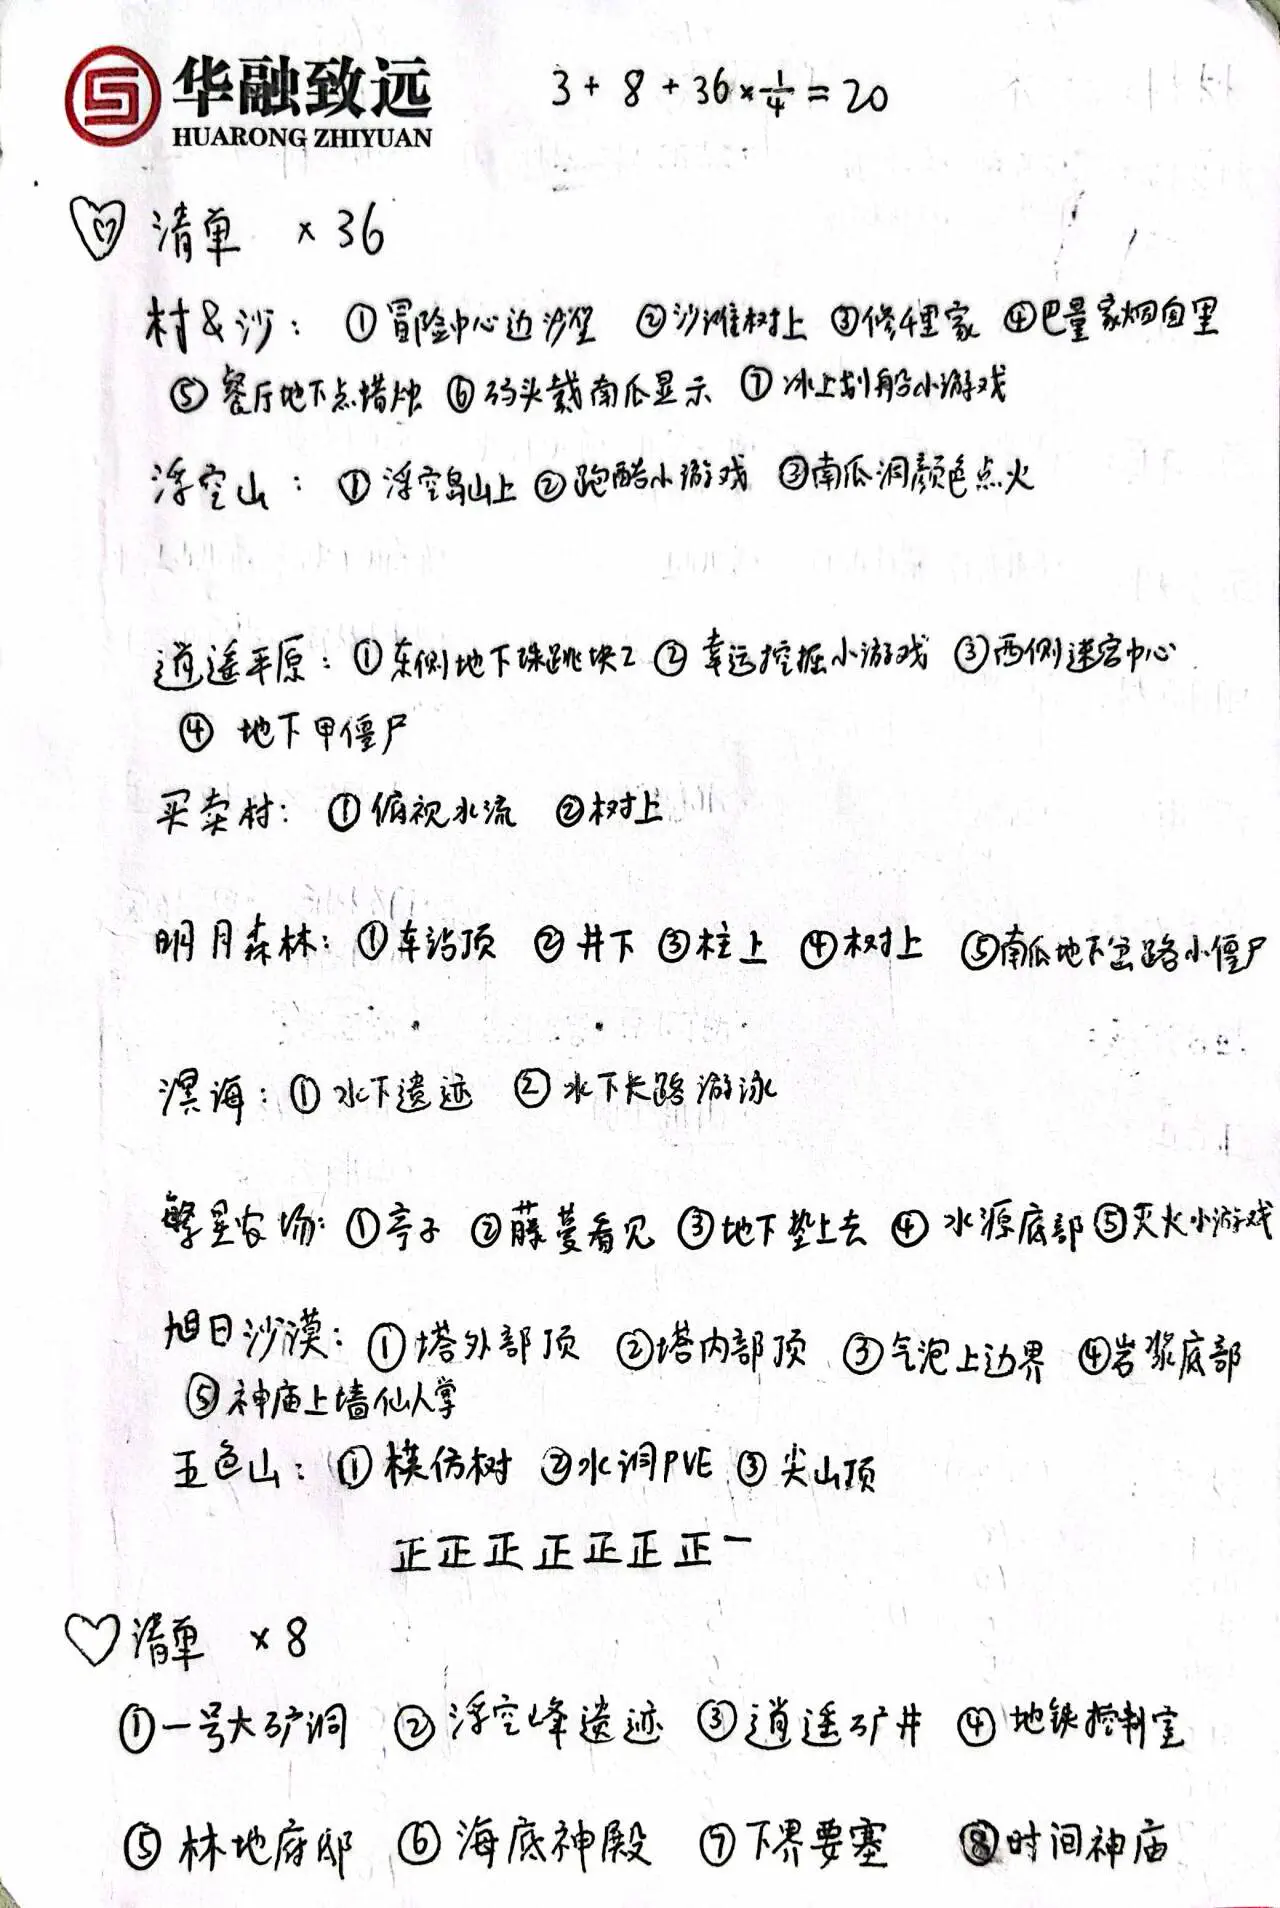 华融致远
HUARONG ZHIYUAN
3 + 8 + 36 × 1/4 = 20
清单 × 36
村&沙: ①冒险中心边沙堡 ②沙滩树上 ③修理家 ④巴量家烟囱里
⑤餐厅地下点蜡烛 ⑥码头戴南瓜显示 ⑦冰上划船小游戏
浮空山: ①浮空岛山上 ②跑酷小游戏 ③南瓜洞颜色点火
逍遥平原: ①东侧地下跳块2 ②幸运挖掘小游戏 ③西侧迷宫中心
④地下甲僵尸
买卖村: ①俯视水流 ②树上
明月森林: ①车站顶 ②井下 ③柱上 ④树上 ⑤南瓜地下岔路小僵尸
溟海: ①水下遗迹 ②水下长路游泳
繁星农场: ①亭子 ②藤蔓看见 ③地下垫上去 ④水源底部 ⑤灭火小游戏
旭日沙漠: ①塔外部顶 ②塔内部顶 ③气泡上边界 ④岩浆底部
⑤神庙上墙仙人掌
五色山: ①模仿树 ②水洞PVE ③尖山顶
正正正正正正正一
清单 × 8
①一号大矿洞 ②浮空峰遗迹 ③逍遥矿井 ④地铁控制室
⑤林地府邸 ⑥海底神殿 ⑦下界要塞 ⑧时间神庙